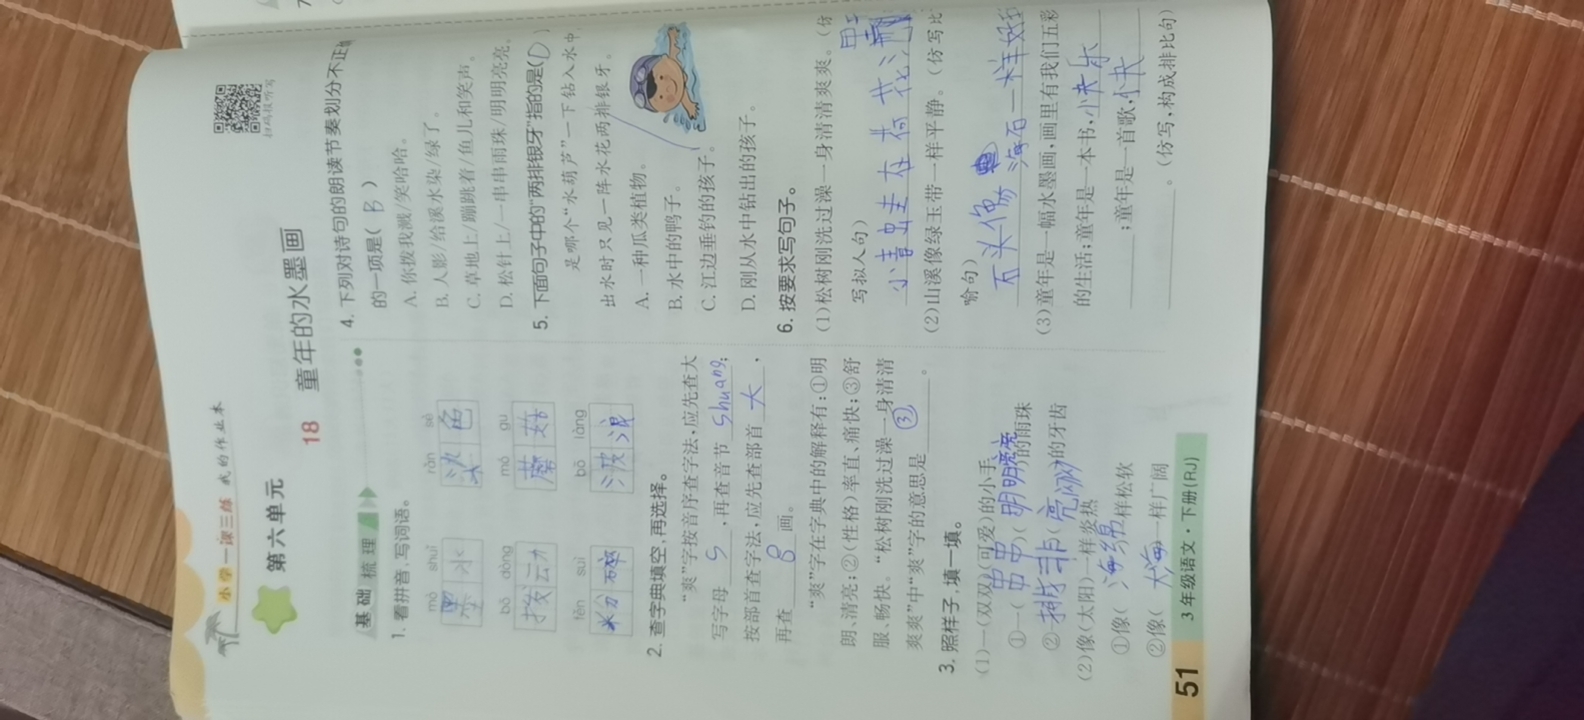 小学一课三练 我的作业本
第六单元
18 童年的水墨画
扫码报听写
基础梳理
1. 看拼音,写词语。
mò shuǐ rǎn sè
墨水 染色
bō dòng mó gu
拨动 蘑菇
fěn suì bō làng
粉碎 波浪
2. 查字典填空,再选择。
“爽”字按音序查字法,应先查大
写字母 S ,再查音节 shuang;
按部首查字法,应先查部首 大 ,
再查 8 画。
“爽”字在字典中的解释有:①明
朗、清亮;②(性格)率直、痛快;③舒
服、畅快。“松树刚洗过澡一身清清
爽爽”中“爽”字的意思是 ③ 。
3. 照样子,填一填。
(1)一(双双)(可爱)的小手
①一(串串)(明明亮亮)的雨珠
②一排排(亮)的牙齿
(2)像(太阳)一样炎热
①像(海绵)一样松软
②像(大海)一样广阔
51 3年级语文·下册(RJ)
4. 下列对诗句的朗读节奏划分不正确
的一项是( B )
A. 你拨我溅/笑哈哈。
B. 人影/给溪水染/绿了。
C. 草地上/蹦跳着/鱼儿和笑声。
D. 松针上/一串串雨珠/明明亮亮。
5. 下面句子中的“两排银牙”指的是(D)
是哪个“水葫芦”一下钻入水中
出水时只见一阵水花两排银牙。
A. 一种瓜类植物。
B. 水中的鸭子。
C. 江边垂钓的孩子。
D. 刚从水中钻出的孩子。
6. 按要求写句子。
(1)松树刚洗过澡一身清清爽爽。(仿
写拟人句)
小青蛙在荷花
(2)山溪像绿玉带一样平静。(仿写比
喻句)
石头像海石一样好
(3)童年是一幅水墨画,画里有我们五彩
的生活;童年是一本书,快乐
;童年是一首歌,快
。(仿写,构成排比句)